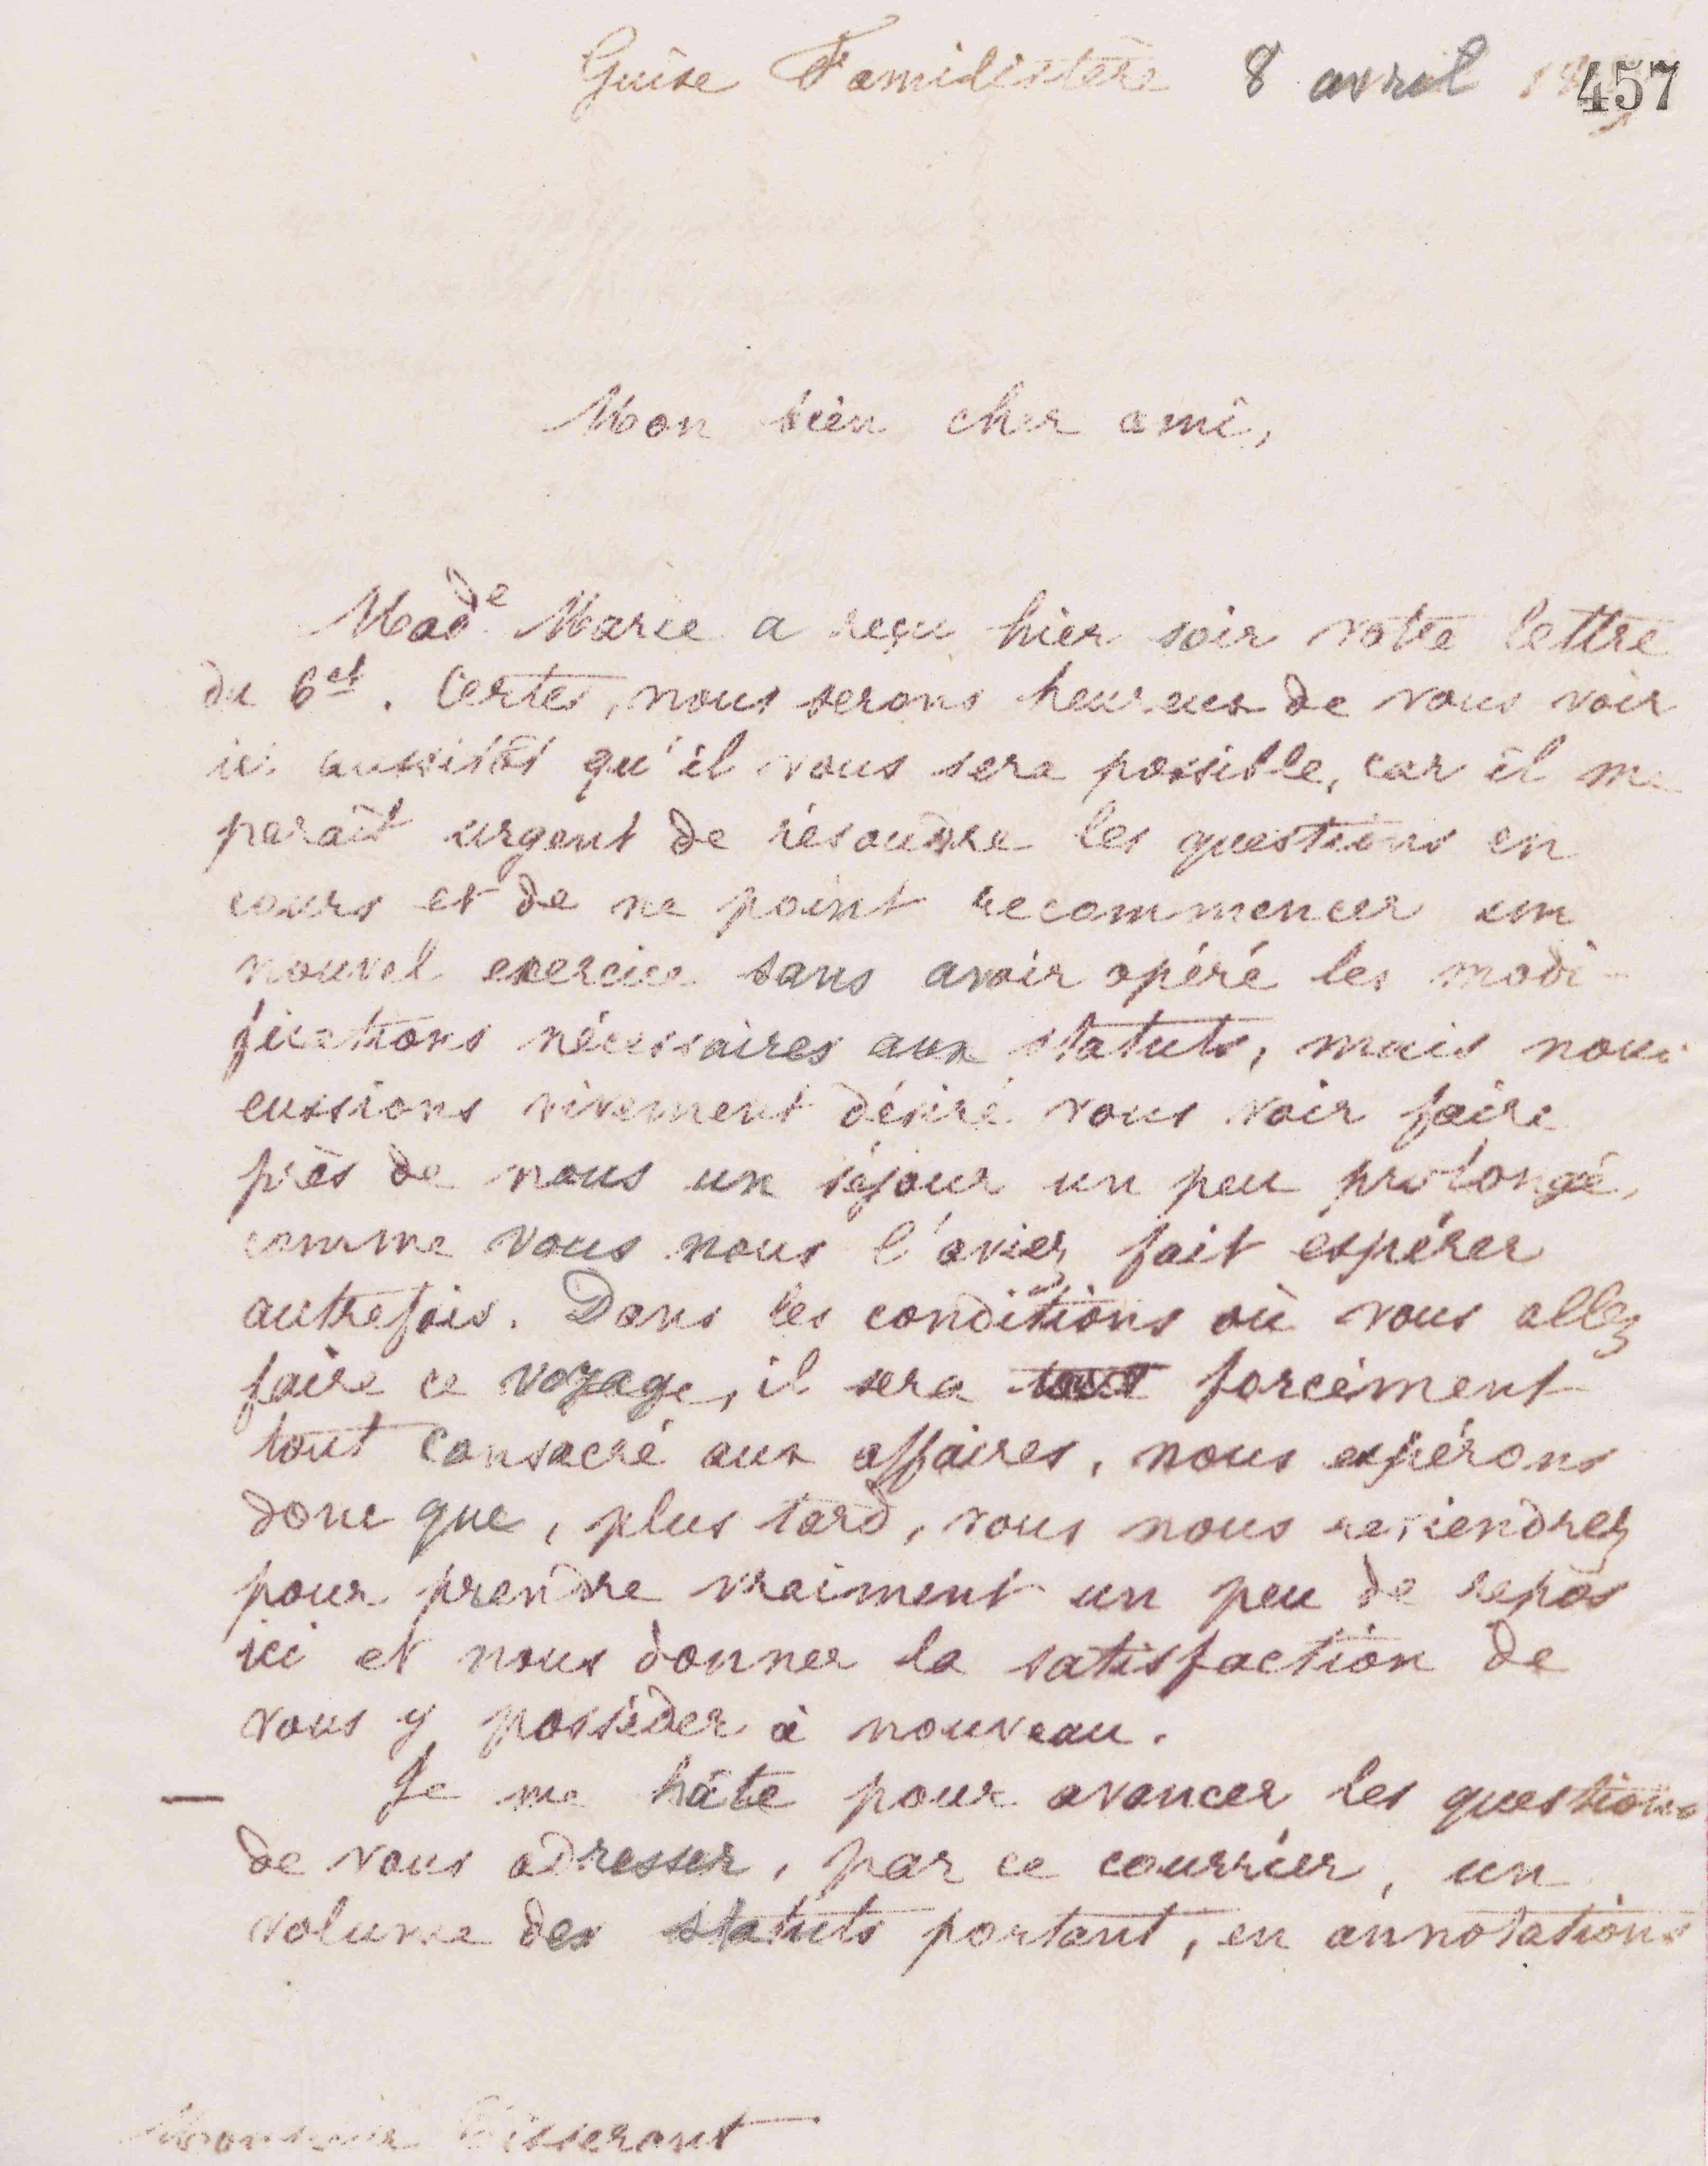 Guise Familistère 8 avril 18
457
Mon bien cher ami,
Made Marie a reçu hier soir votre lettre
du 6ct. Certes, nous serons heureux de vous voir
ici aussitôt qu'il vous sera possible, car il me
paraît urgent de résoudre les questions en
cours et de ne point recommencer un
nouvel exercice sans avoir opéré les modi-
fications nécessaires aux statuts, mais nous
eussions vivement désiré vous voir faire
près de nous un séjour un peu prolongé,
comme vous nous l'aviez fait espérer
autrefois. Dans les conditions où vous allez
faire ce voyage, il sera tout forcément
tout consacré aux affaires, nous espérons
donc que, plus tard, vous nous reviendrez
pour prendre vraiment un peu de repos
ici et nous donner la satisfaction de
vous y posséder à nouveau.
— Je me hâte pour avancer les questions
de vous adresser, par ce courrier, un
volume des statuts portant, en annotations
Monsieur Tisserant